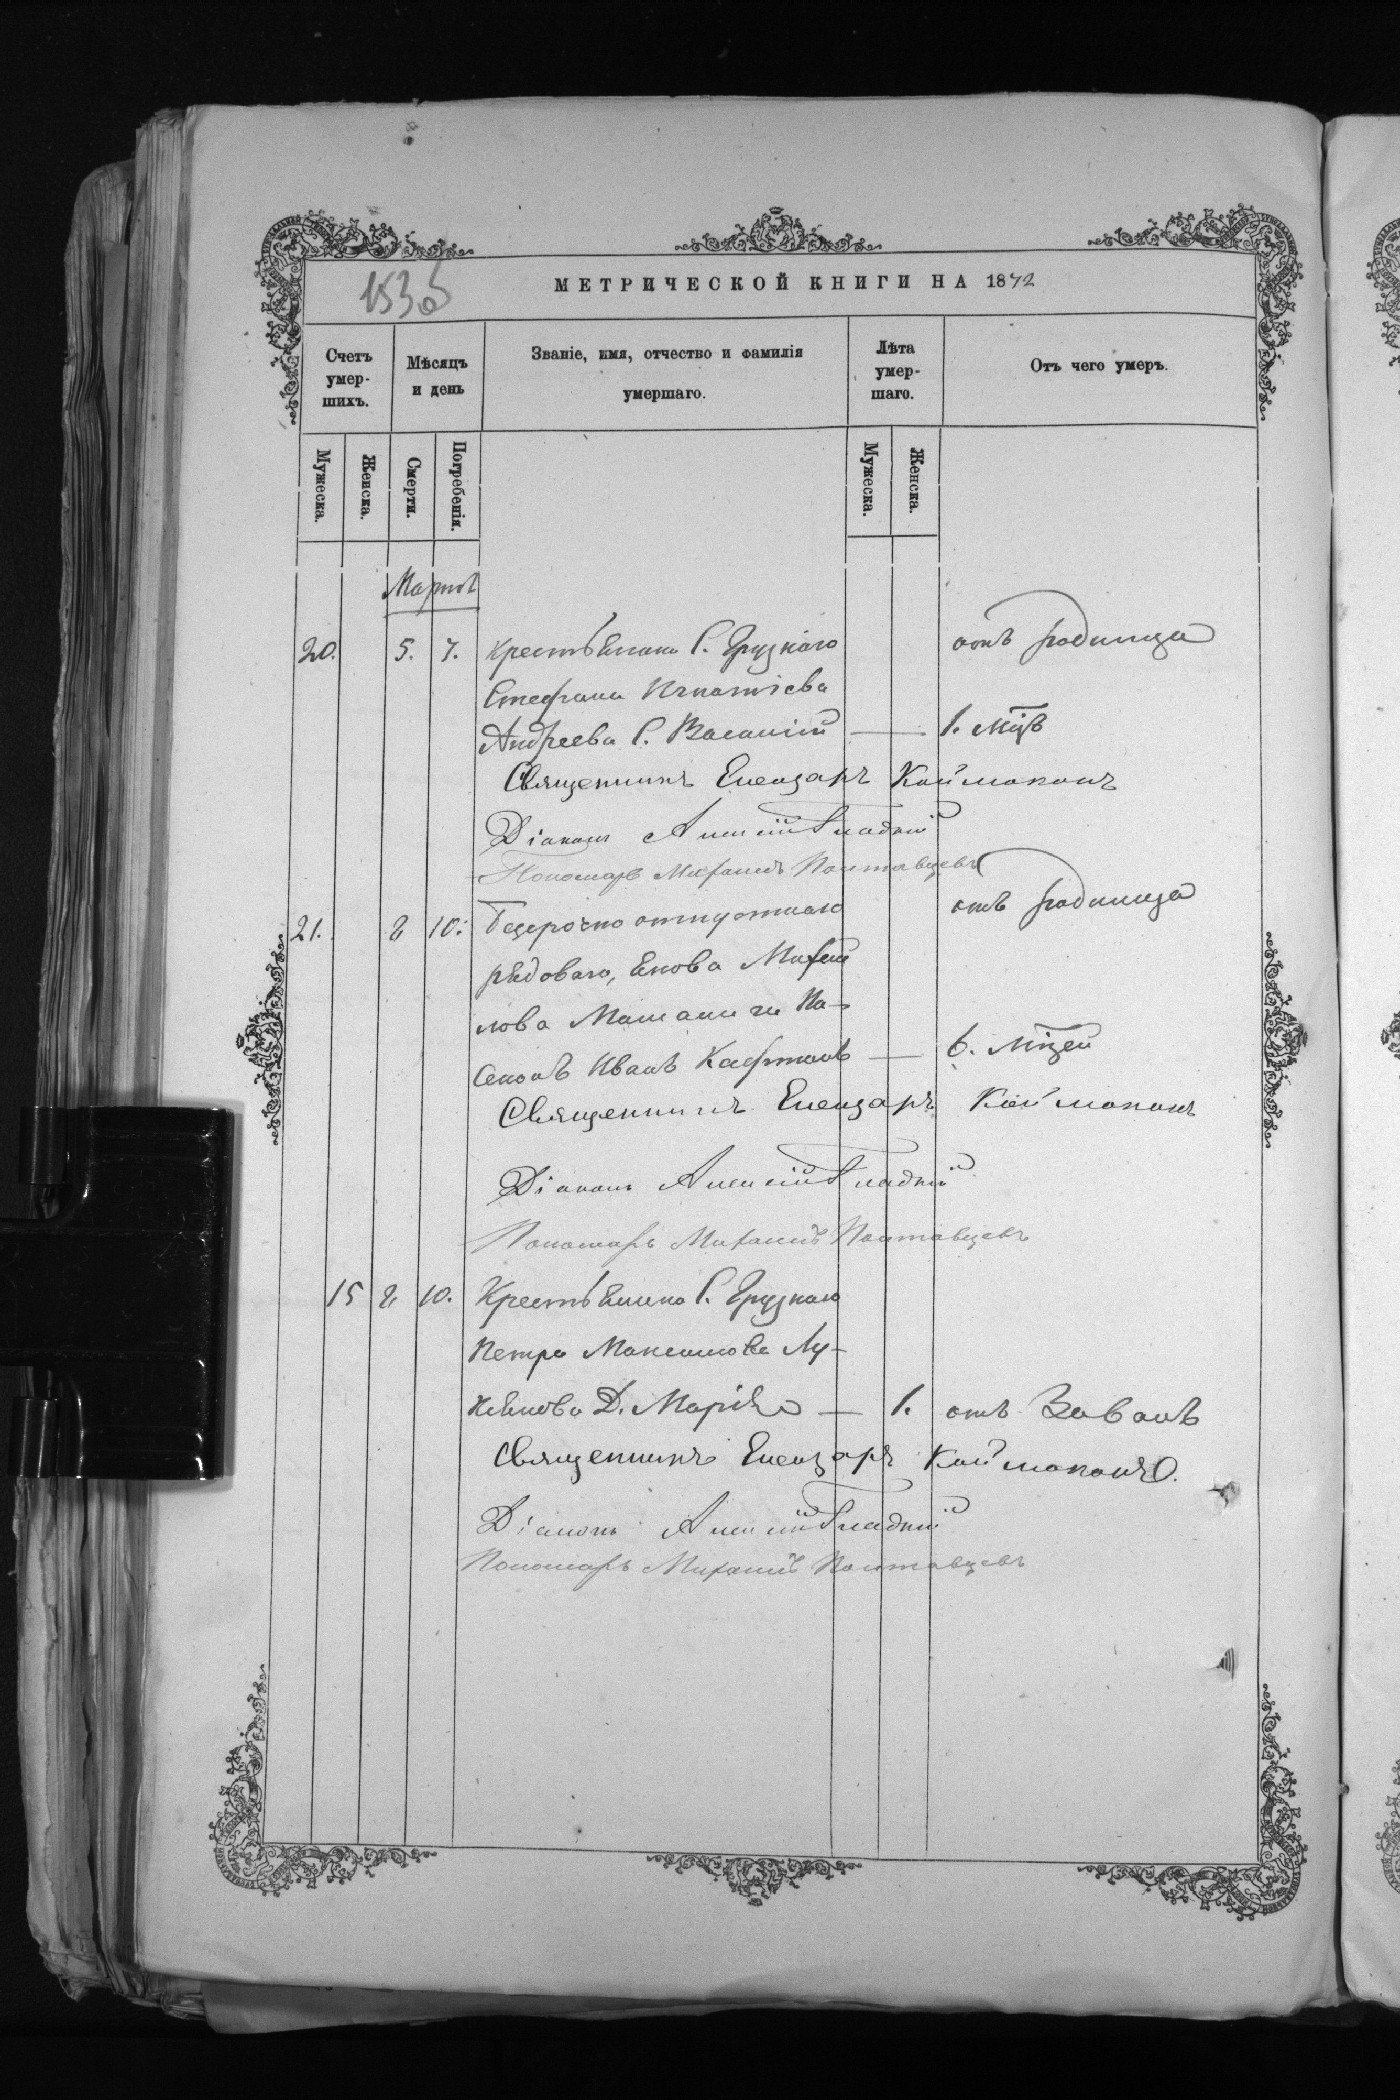 153об
МЕТРИЧЕСКОЙ КНИГИ НА 1872
Счетъ умер-шихъ.
Мѣсяцъ и день
Званіе, имя, отчество и фамилія умершаго.
Лѣта умер-шаго.
Отъ чего умеръ.
Мужеска.
Женска.
Смерти.
Погребенія.
Мужеска.
Женска.
Мартъ
20. 5. 7. Крестьянина С. Грузкаго отъ родимца
Стефана Игнатіева
Андреева С. Василій — 1. мцъ
Священникъ Елеазаръ Каймаканъ
Діаконъ Алексій Гладкій
Пономарь Михаилъ Полтавцевъ
21. 8 10. отпускнаго отъ родимца
рядоваго, Якова Михай
лова На-
Сынъ Иванъ Кафтанъ — 6. мцей
Священникъ Елеазаръ Каймаканъ
Діаконъ Алексій Гладкій
Пономарь Михаилъ Полтавцевъ
15 8 10. Крестьянина С. Грузкаго
Петра Максимова Лу-
Д. Марія — 1. отъ
Священникъ Елеазаръ Каймаканъ.
Діаконъ Алексій Гладкій
Пономарь Михаилъ Полтавцевъ